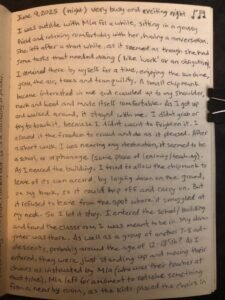 June 9, 2025 (night) very busy and exciting night
I was outside with Mia for a while, sitting in a grassy
field and relaxing comfortably with her, having a conversation.
She left after a short while, as it seemed as though she had
some tasks that needed doing (like work or an obligation)
I remained there by myself for a time, enjoying the sunshine,
the air, trees and tranquility. A small chipmunk
became interested in me and crawled up to my shoulder,
neck and head and made itself comfortable. As I got up
and walked around, it stayed with me. I didn't grab or
try to touch it, because I didn't want to frighten it. I
allowed it the freedom to crawl and do as it pleased. After
a short walk, I was nearing my destination, it seemed to be
a school or orphanage (some place of learning/teaching).
As I neared the building, I tried to allow the chipmunk to
leave of its own accord by laying down on the ground,
on my back, so it could hop off and carry on. But
it refused to leave from the spot where it snuggled at
my neck. So I let it stay. I entered the school/building
and found the classroom I was meant to be in. My
was there. As well as a group of another 7-8
adolescents, probably around the age of 12-15ish? As I
entered, they were just standing up and moving their
chairs as instructed by Mia (who was their teacher at
that time). Mia left for a moment to retrieve something
from a nearby room, as the kids placed the chairs in